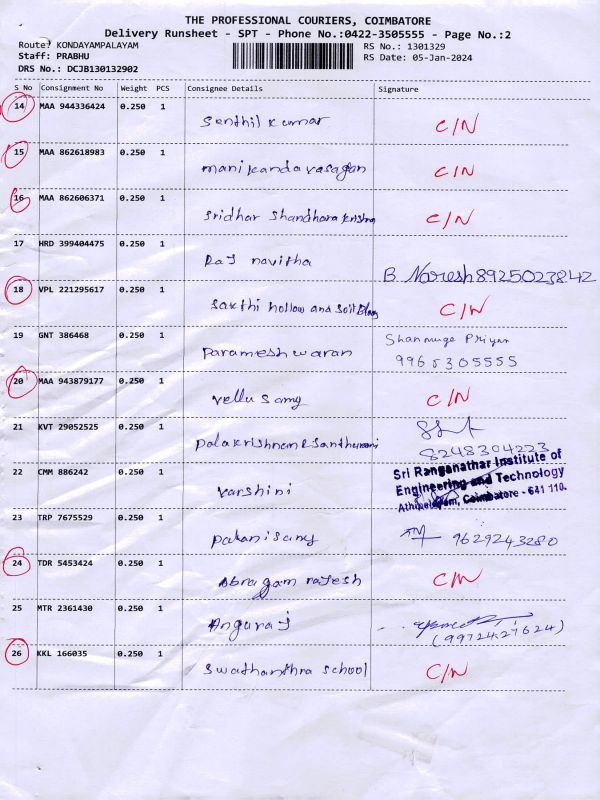 THE PROFESSIONAL COURIERS, COIMBATORE
Delivery Runsheet - SPT - Phone No.:0422-3505555 - Page No.:2
Route: KONDAYAMPALAYAM RS No.: 1301329
Staff: PRABHU RS Date: 05-Jan-2024
DRS No.: DCJB130132902
S No Consignment No Weight PCS Consignee Details Signature
14 MAA 944336424 0.250 1
Senthil kumar C/N
15 MAA 862618983 0.250 1
manikanda vasagan C/N
16 MAA 862606371 0.250 1
Sridhar Shandhara krishna C/N
17 HRD 399404475 0.250 1
Raj navitha B. Naresh 8925023842
18 VPL 221295617 0.250 1
Sakthi hollow and C/N
19 GNT 386468 0.250 1 Shanmuga Priyan
Parameshwaran 9965305555
20 MAA 943879177 0.250 1
Vellu samy C/N
21 KVT 29052525 0.250 1
8248304223
22 CMM 886242 0.250 1 Sri Ranganathar Institute of
Varshini Engineering and Technology
Athipalayam, Coimbatore - 641 110.
23 TRP 7675529 0.250 1
Palanisamy 9629243280
24 TDR 5453424 0.250 1
Abragam rajesh C/N
25 MTR 2361430 0.250 1
Anguraj (9972427624)
26 KKL 166035 0.250 1
Swathanthra school C/N